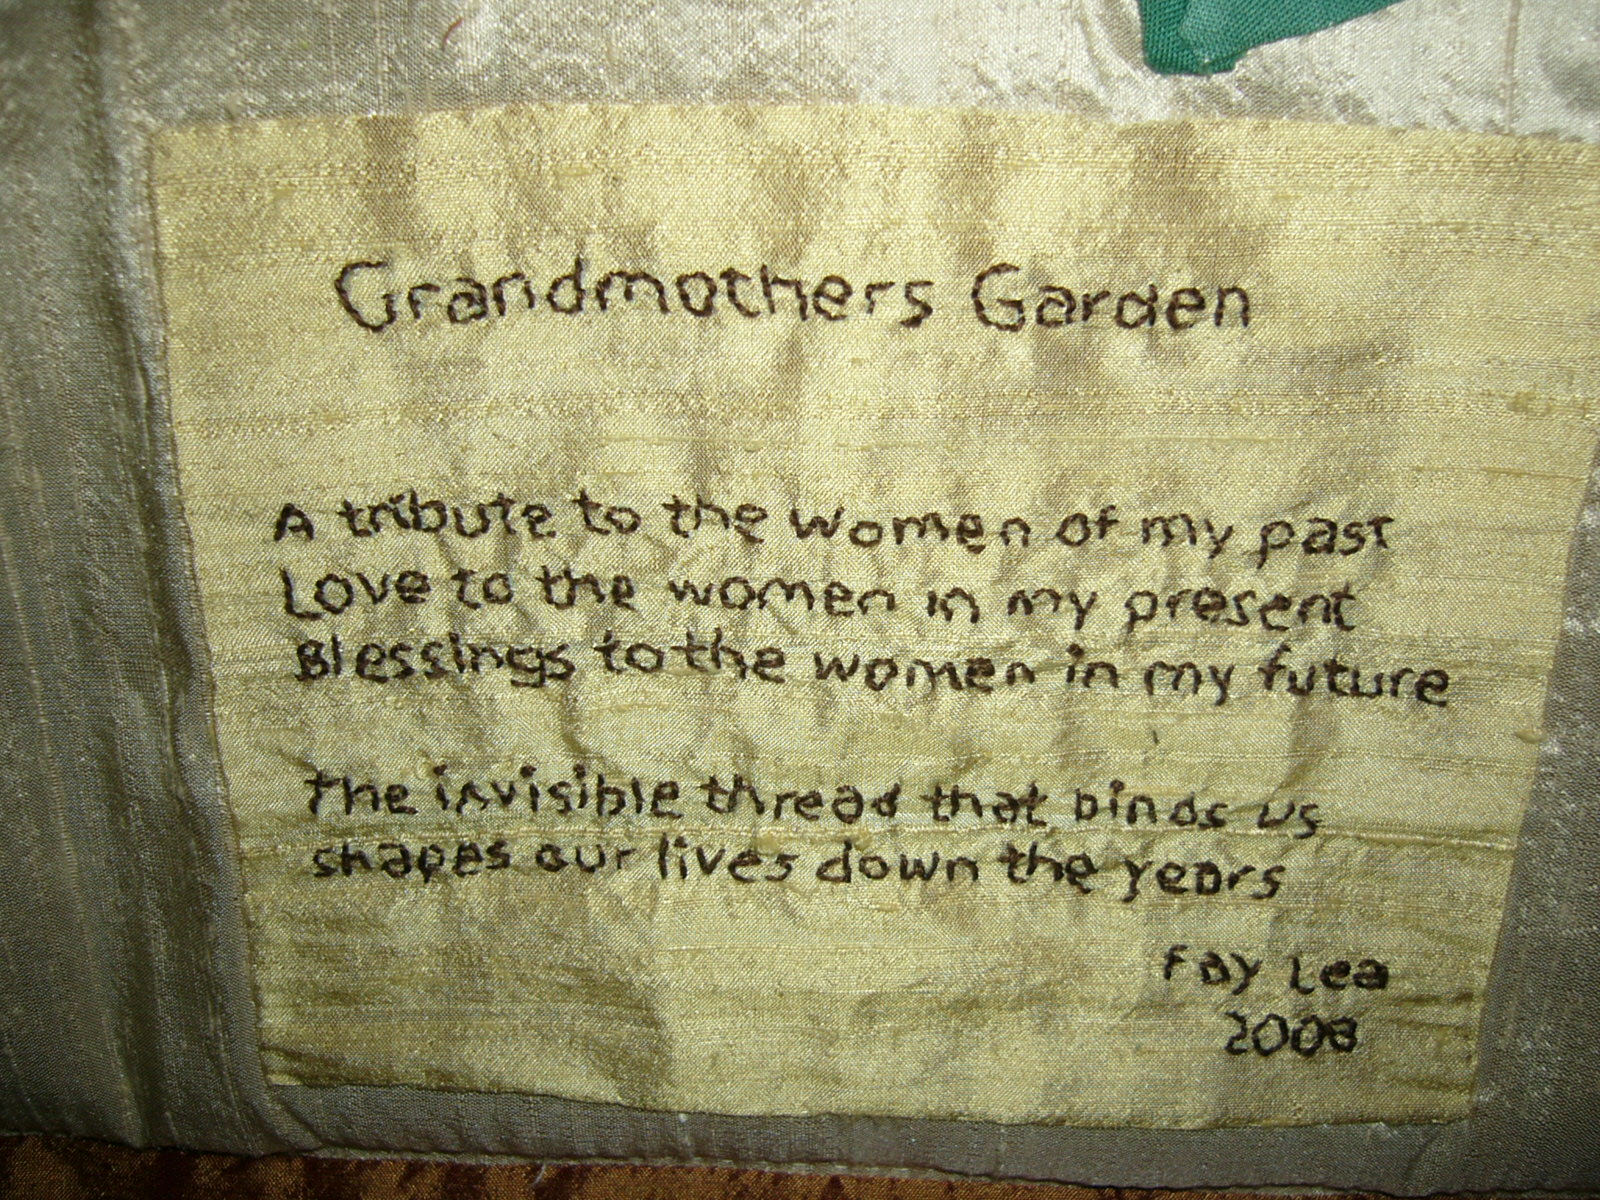 Grandmothers Garden
A tribute to the women of my past
Love to the women in my present
Blessings to the women in my future
The invisible thread that binds us
shapes our lives down the years
Fay Lea
2008